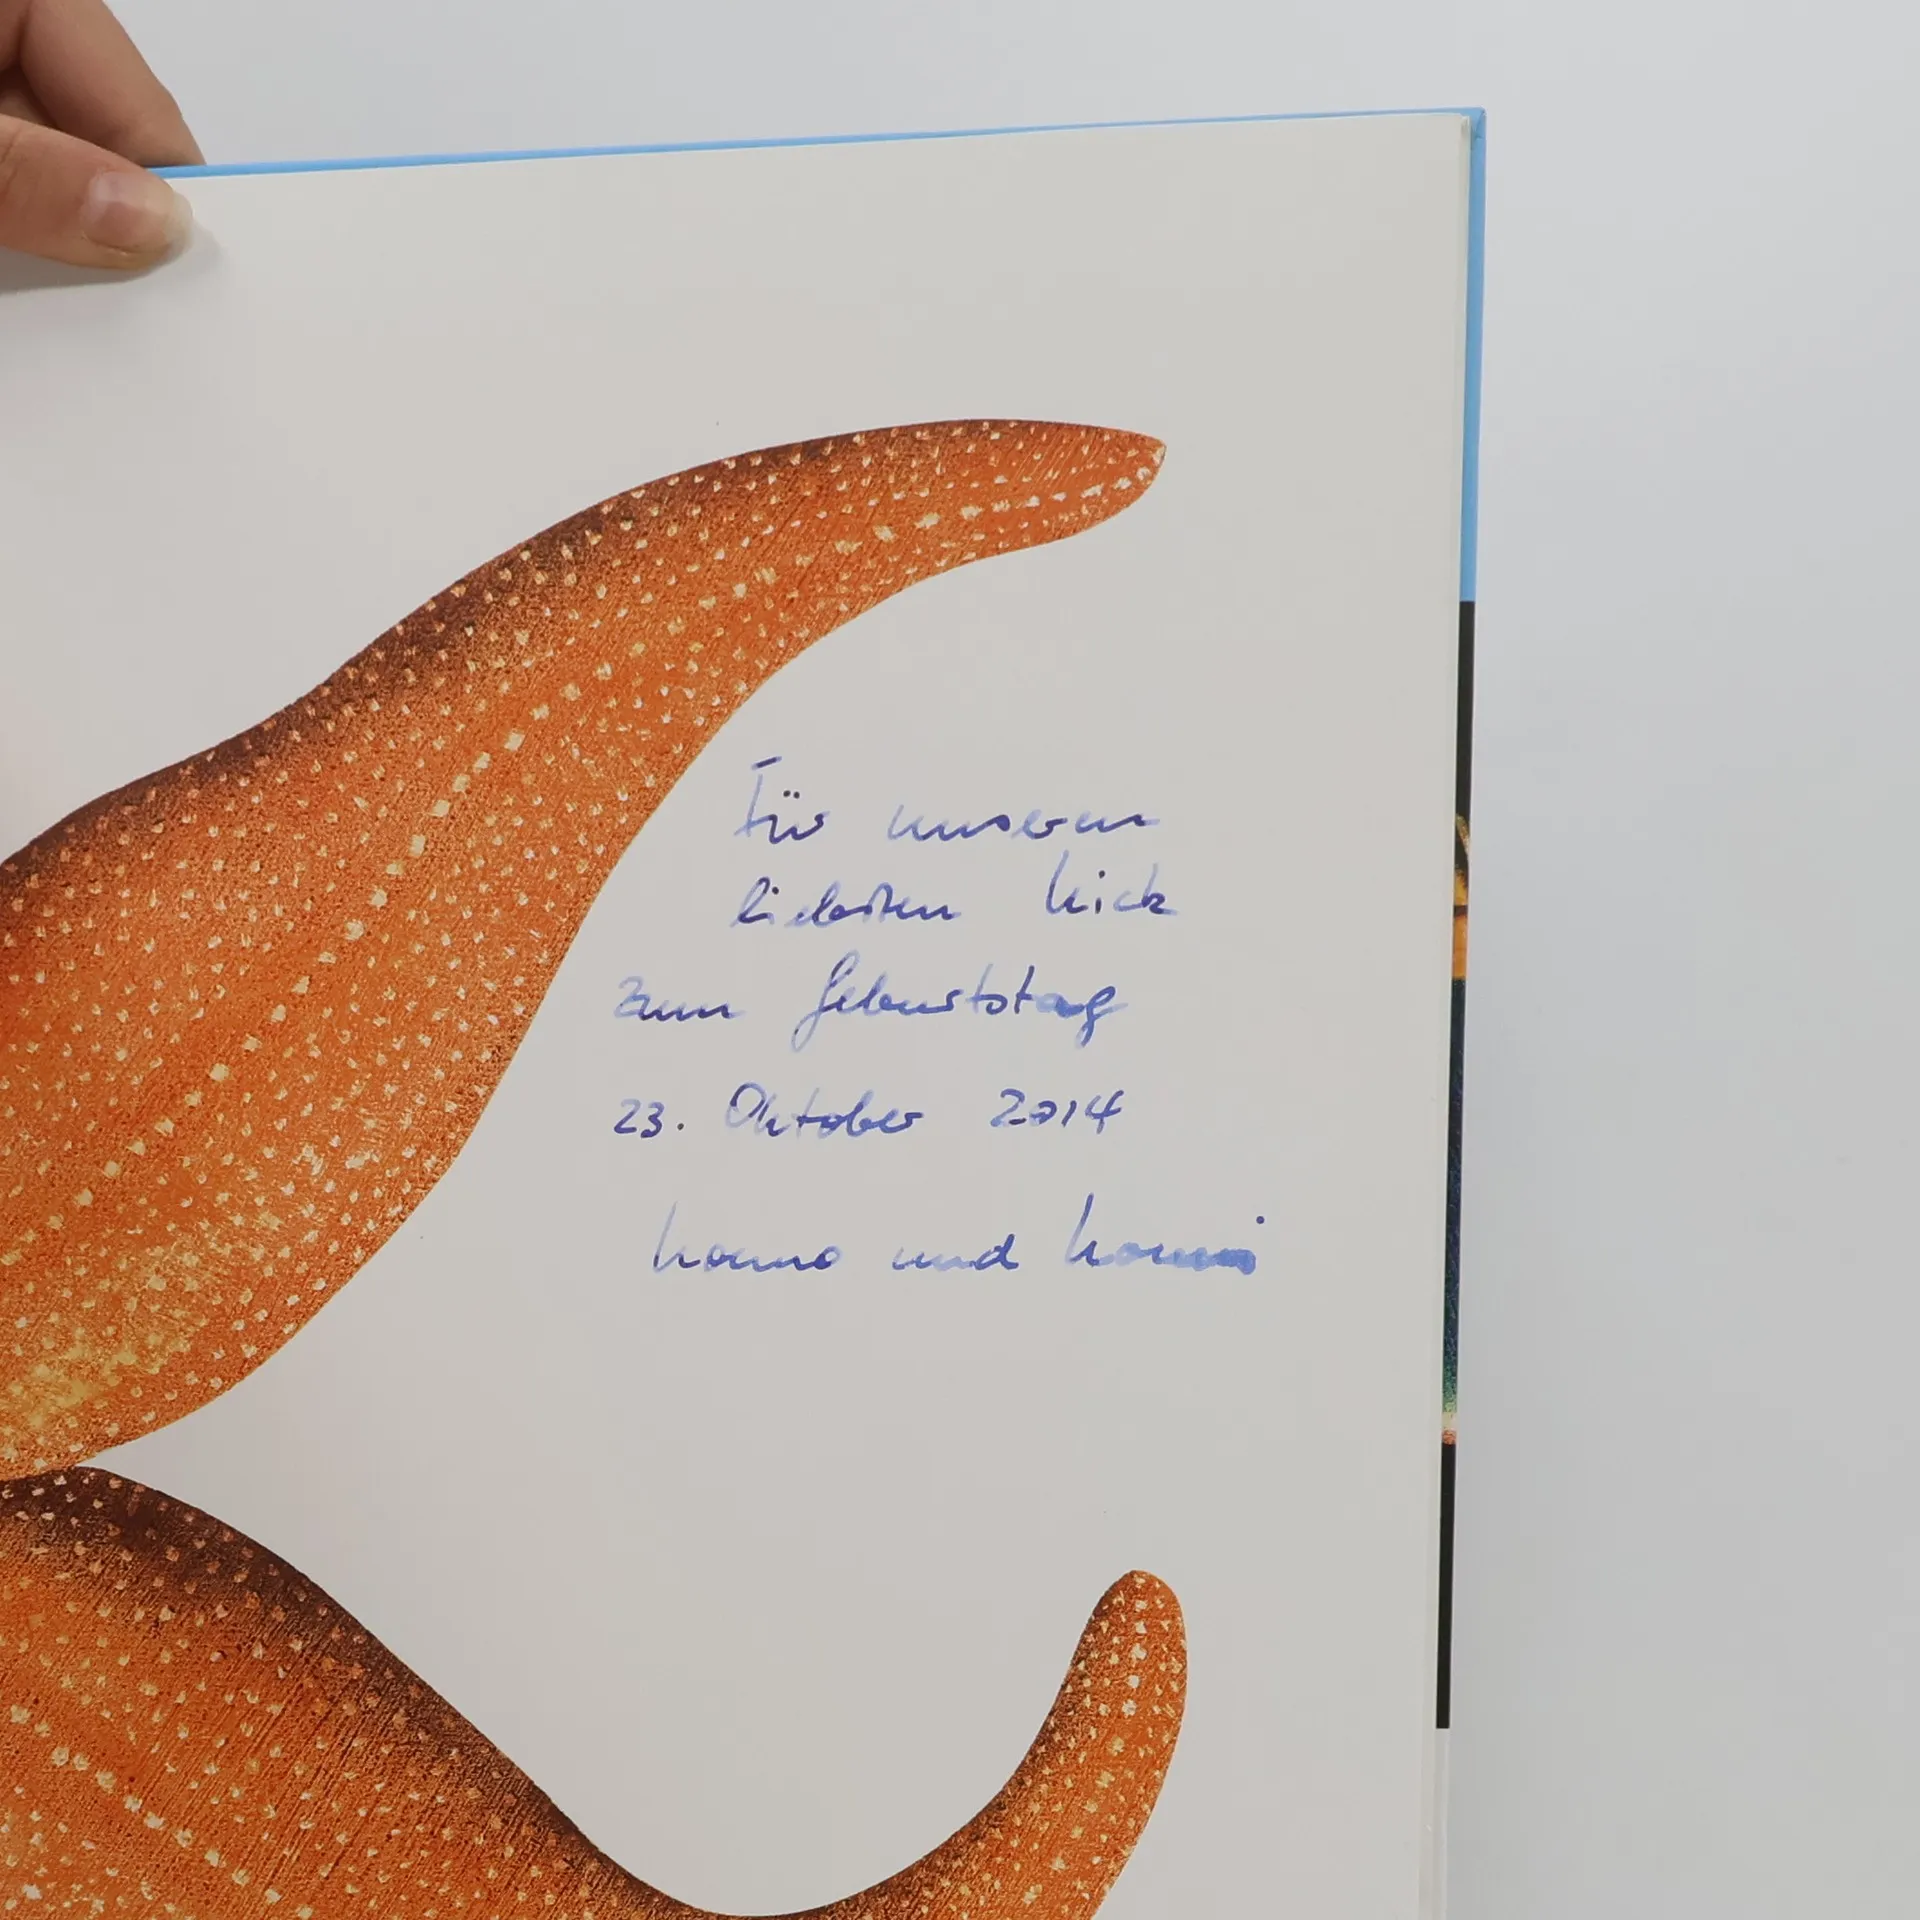 Für unseren
liebsten Nick
zum Geburtstag
23. Oktober 2014
und